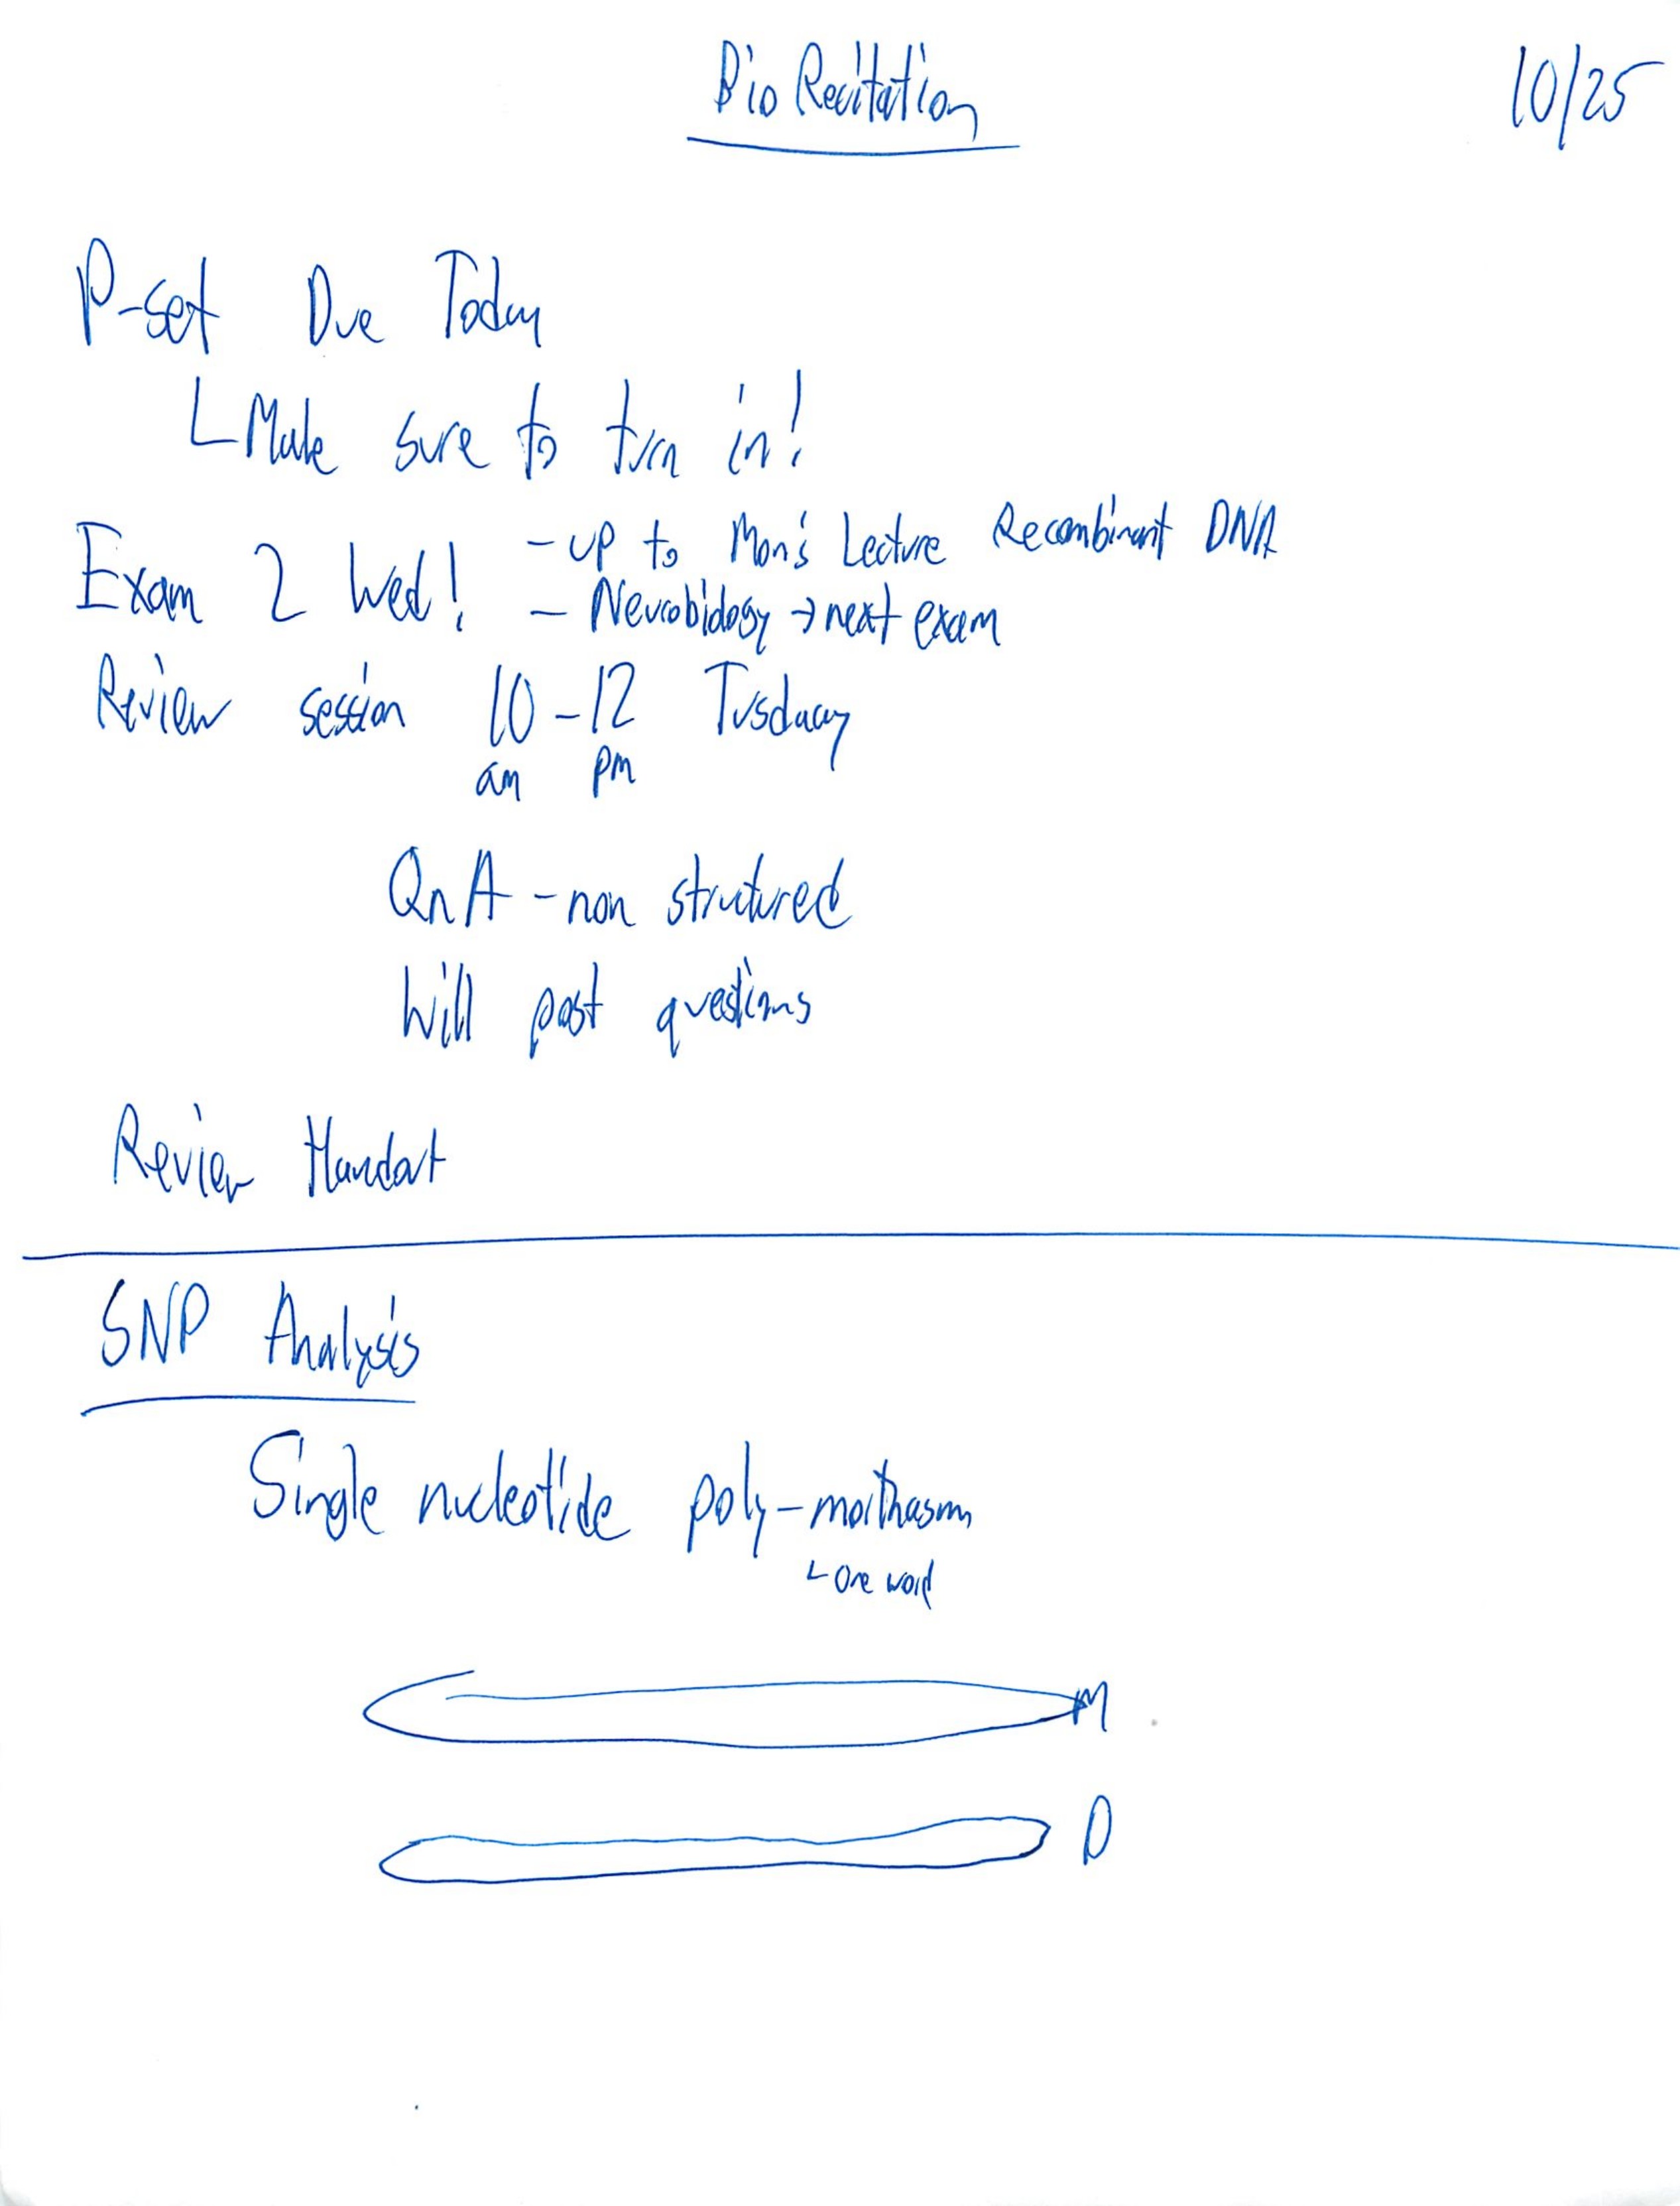 Bio Recitation
10/25
P-set Due Today
Make sure to turn in!
Exam 2 Wed! - up to Mon's Lecture Recombinant DNA
- Neurobiology → next exam
Review session 10-12 Tusday
am pm
QnA - non structured
Will post questions
Review Handout
SNP Analysis
Single nucleotide poly-
one word
M
D